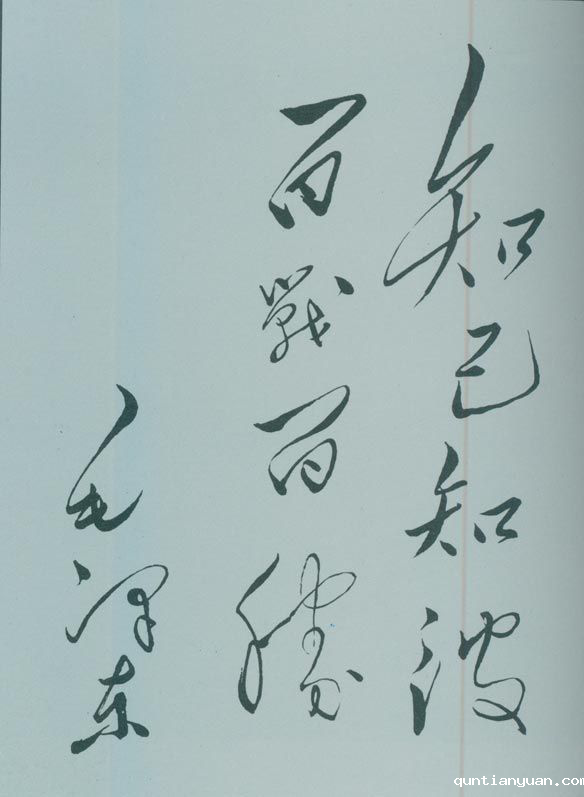 知己知彼
百戰百勝
毛泽东
quntianyuan.com